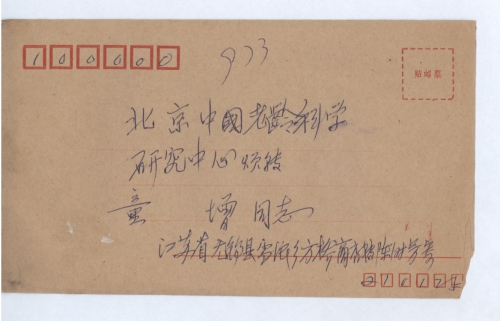 100000
973
贴邮票
北京中國老龄科学
研究中心烦转
童 增同志
江苏省无锡县